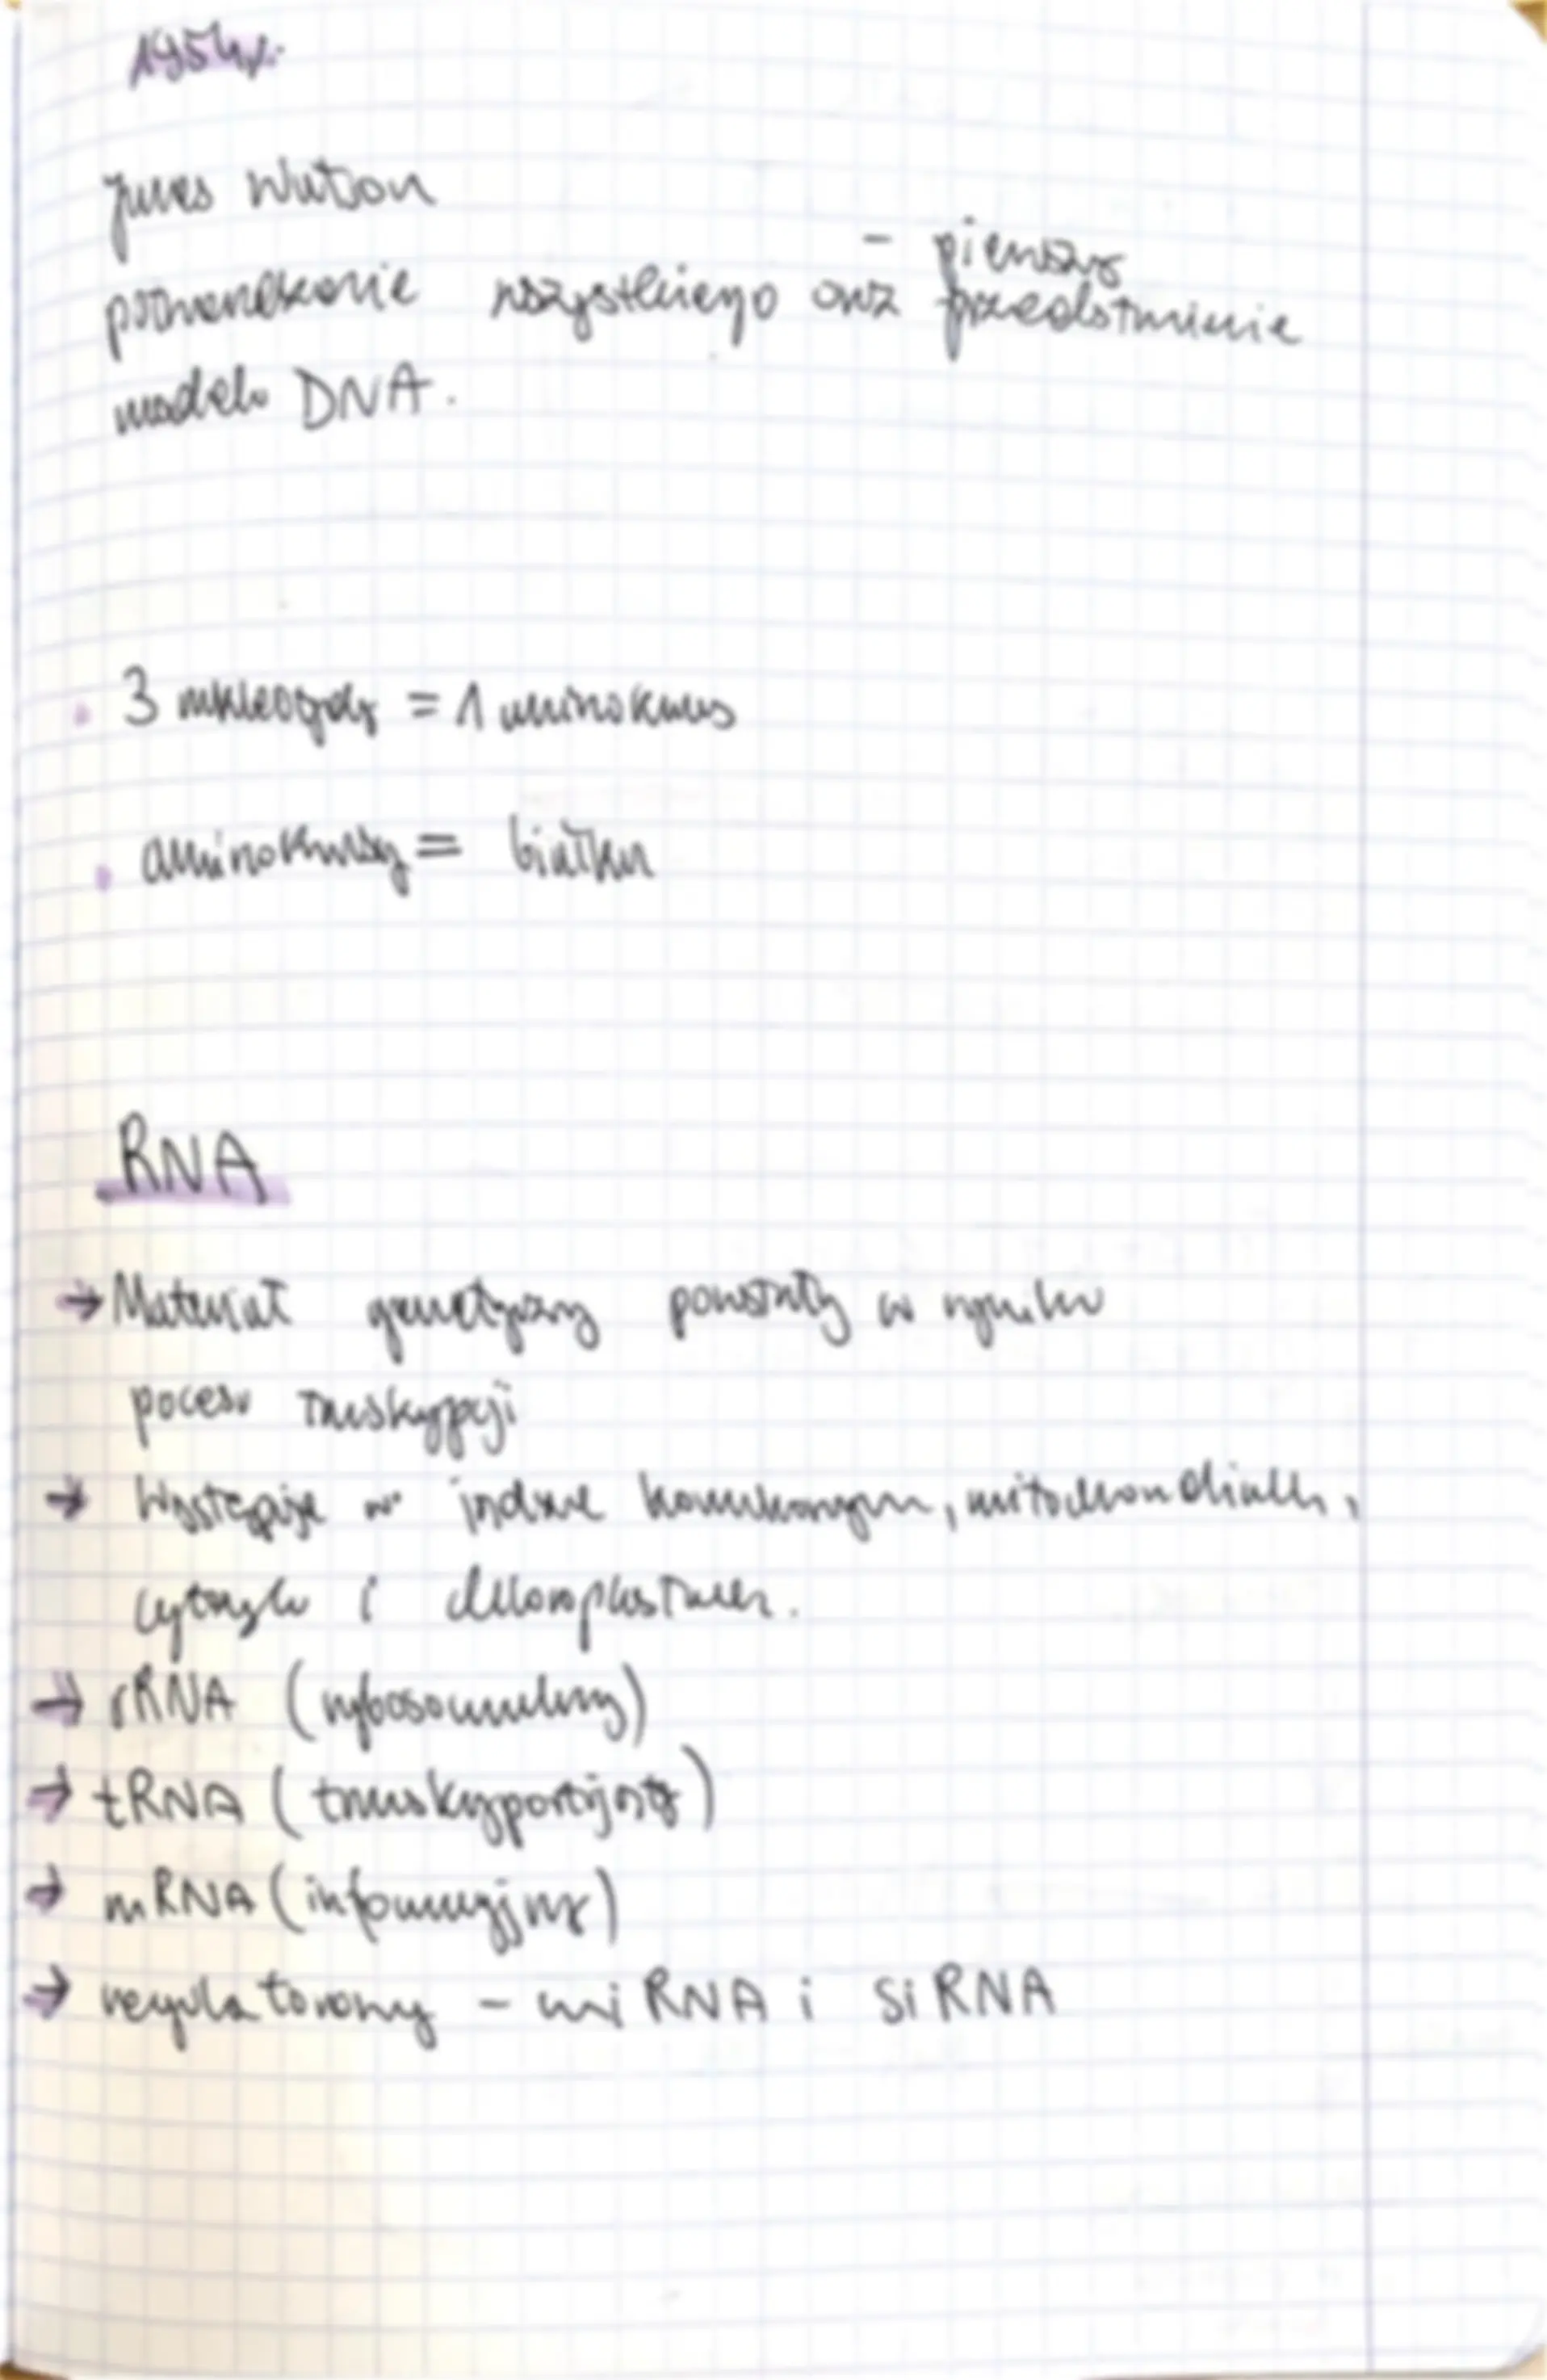 1954r.
James Watson
- pierwszy
potwierdzenie wszystkiego oraz przedstawienie
modelu DNA.
3 nukleotydy = 1 aminokwas
aminokwasy = białka
RNA
→ Materiał genetyczny powstały w wyniku
procesu transkrypcji
→ Występuje w jądrze komórkowym, mitochondriach,
cytozolu i chloroplastach.
→ rRNA (rybosomalny)
→ tRNA ( )
→ mRNA (informacyjny)
→ regulatorowy - miRNA i siRNA